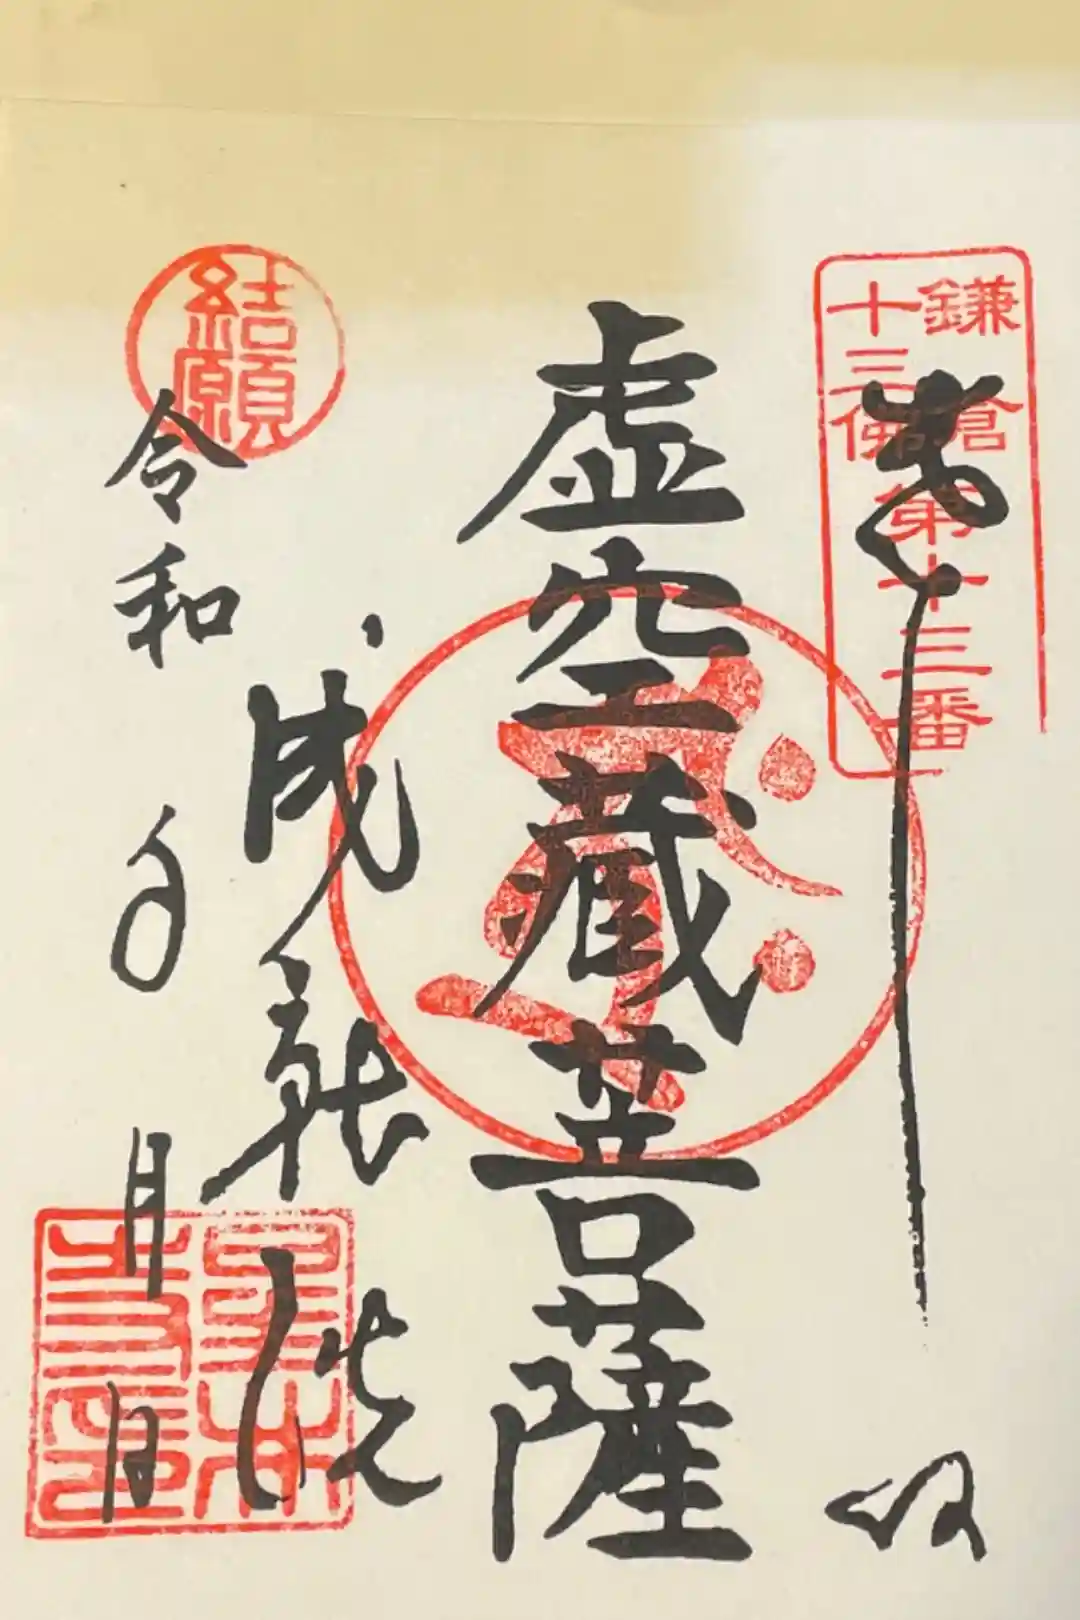 鎌倉
十三佛
第十三番
奉拝
虚空蔵菩薩
成就院
結願
令和 年 月 日
星井
寺印